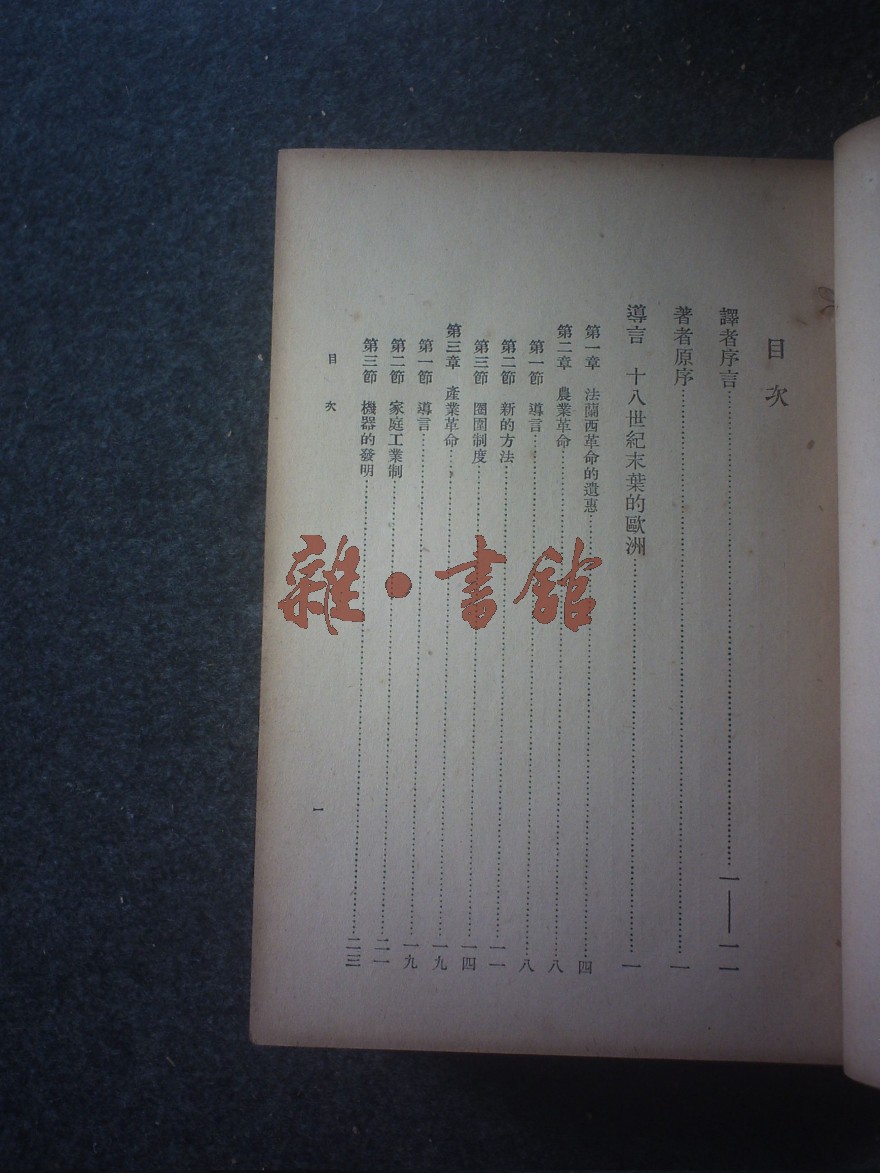 目次
譯者序言……一——一一
著者原序……一
導言　十八世紀末葉的歐洲……一
第一章　法蘭西革命的遺惠……四
第二章　農業革命……八
第一節　導言……八
第二節　新的方法……一一
第三節　圈圍制度……一四
第三章　產業革命……一九
第一節　導言……一九
第二節　家庭工業制……二一
第三節　機器的發明……二三
目次
一
雜·書館